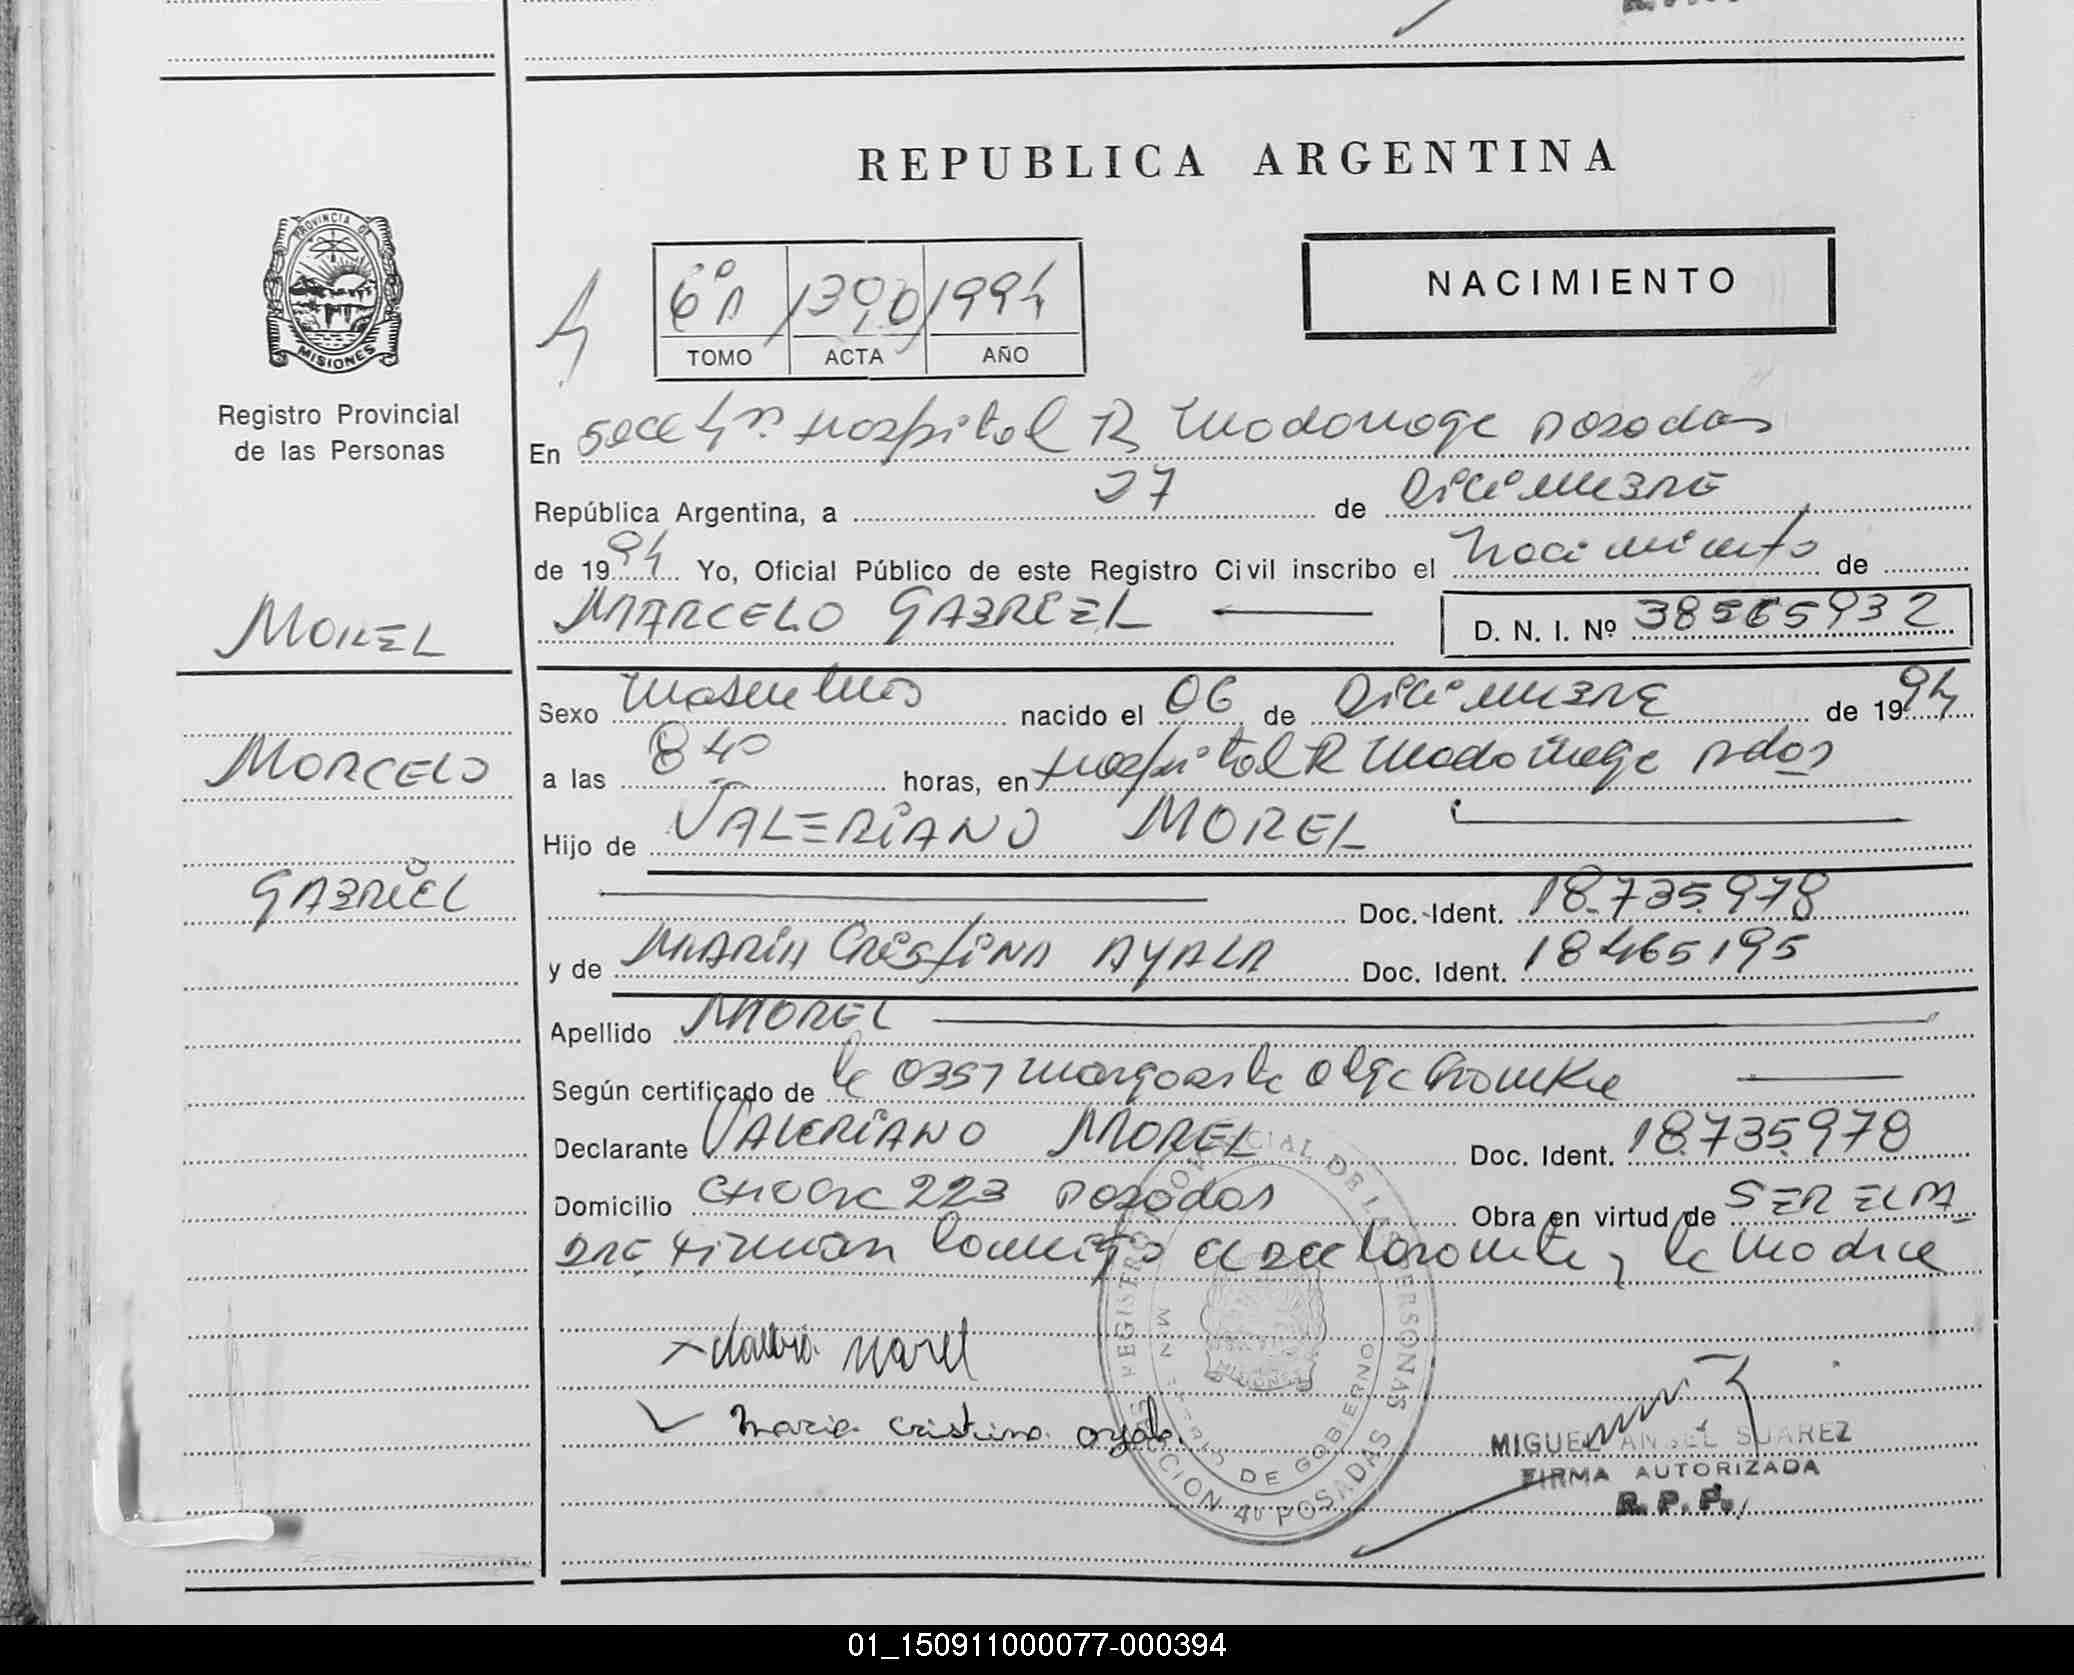 REPUBLICA ARGENTINA
PROVINCIA DE
MISIONES
Registro Provincial
de las Personas
6º A 1390 1994
TOMO ACTA AÑO
NACIMIENTO
En Secc 4ª Hospital R Madariaga Posadas
República Argentina, a 27 de DICIEMBRE
de 1994 Yo, Oficial Público de este Registro Civil inscribo el Nacimiento de
MARCELO GABRIEL D. N. I. Nº 38565932
MOREL
MARCELO
GABRIEL
Sexo Masculino nacido el 06 de DICIEMBRE de 1994
a las 8 40 horas, en Hospital R Madariaga Pdas
Hijo de VALERIANO MOREL
Doc. Ident. 18.735.978
y de MARIA CRISTINA AYALA Doc. Ident. 18465195
Apellido MOREL
Según certificado de la Olga
Declarante VALERIANO MOREL Doc. Ident. 18.735.978
Domicilio 223 Posadas Obra en virtud de SER EL PA
DRE, Firman conmigo el declarante y la madre
Morel
Maria Cristina Ayala
REGISTRO PROVINCIAL DE LAS PERSONAS
MINISTERIO DE GOBIERNO
MISIONES
POSADAS
MIGUEL ANGEL SUAREZ
FIRMA AUTORIZADA
R. P. P.
01_150911000077-000394